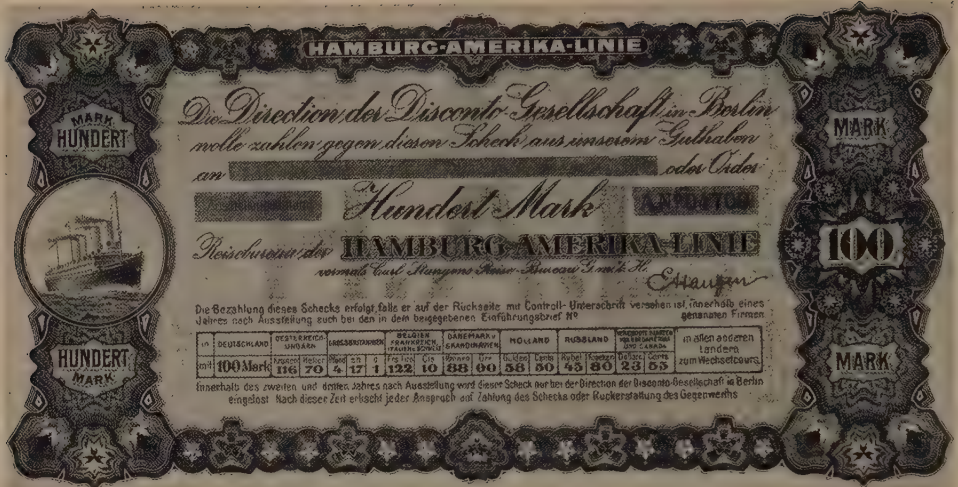 HAMBURG-AMERIKA-LINIE
MARK
HUNDERT
MARK
Die Direction der Disconto-Gesellschaft in Berlin
wolle zahlen gegen diesen Scheck aus unserem Guthaben
an oder Ordre
Hundert Mark
Reisebureau der HAMBURG-AMERIKA-LINIE
vormals Carl Stangens Reise-Bureau G.m.b.H.
100
Die Bezahlung dieses Schecks erfolgt, falls er auf der Rückseite mit Controll-Unterschrift versehen ist, innerhalb eines
Jahres nach Ausstellung auch bei den in dem beigegebenen Einführungsbrief No genannten Firmen
in DEUTSCHLAND OESTERREICH-UNGARN GROSSBRITANNIEN BELGIEN FRANKREICH, ITALIEN, SCHWEIZ DÄNEMARK u SKANDINAVIEN HOLLAND RUSSLAND VEREINIGTE STAATEN VON NORDAMERIKA UND CANADA in allen anderen
Ländern
mit 100 Mark Kronen Heller Pfund sh d Frs Cts Kronen Öre Gulden Cents Rubel Kopeken Dollars Cents zum Wechselcours
116 70 4 17 1 122 10 88 00 58 50 45 80 23 55
Innerhalb des zweiten und dritten Jahres nach Ausstellung wird dieser Scheck nur bei der Direction der Disconto-Gesellschaft in Berlin
eingelöst Nach dieser Zeit erlischt jeder Anspruch auf Zahlung des Schecks oder Rückerstattung des Gegenwerths
HUNDERT
MARK
MARK